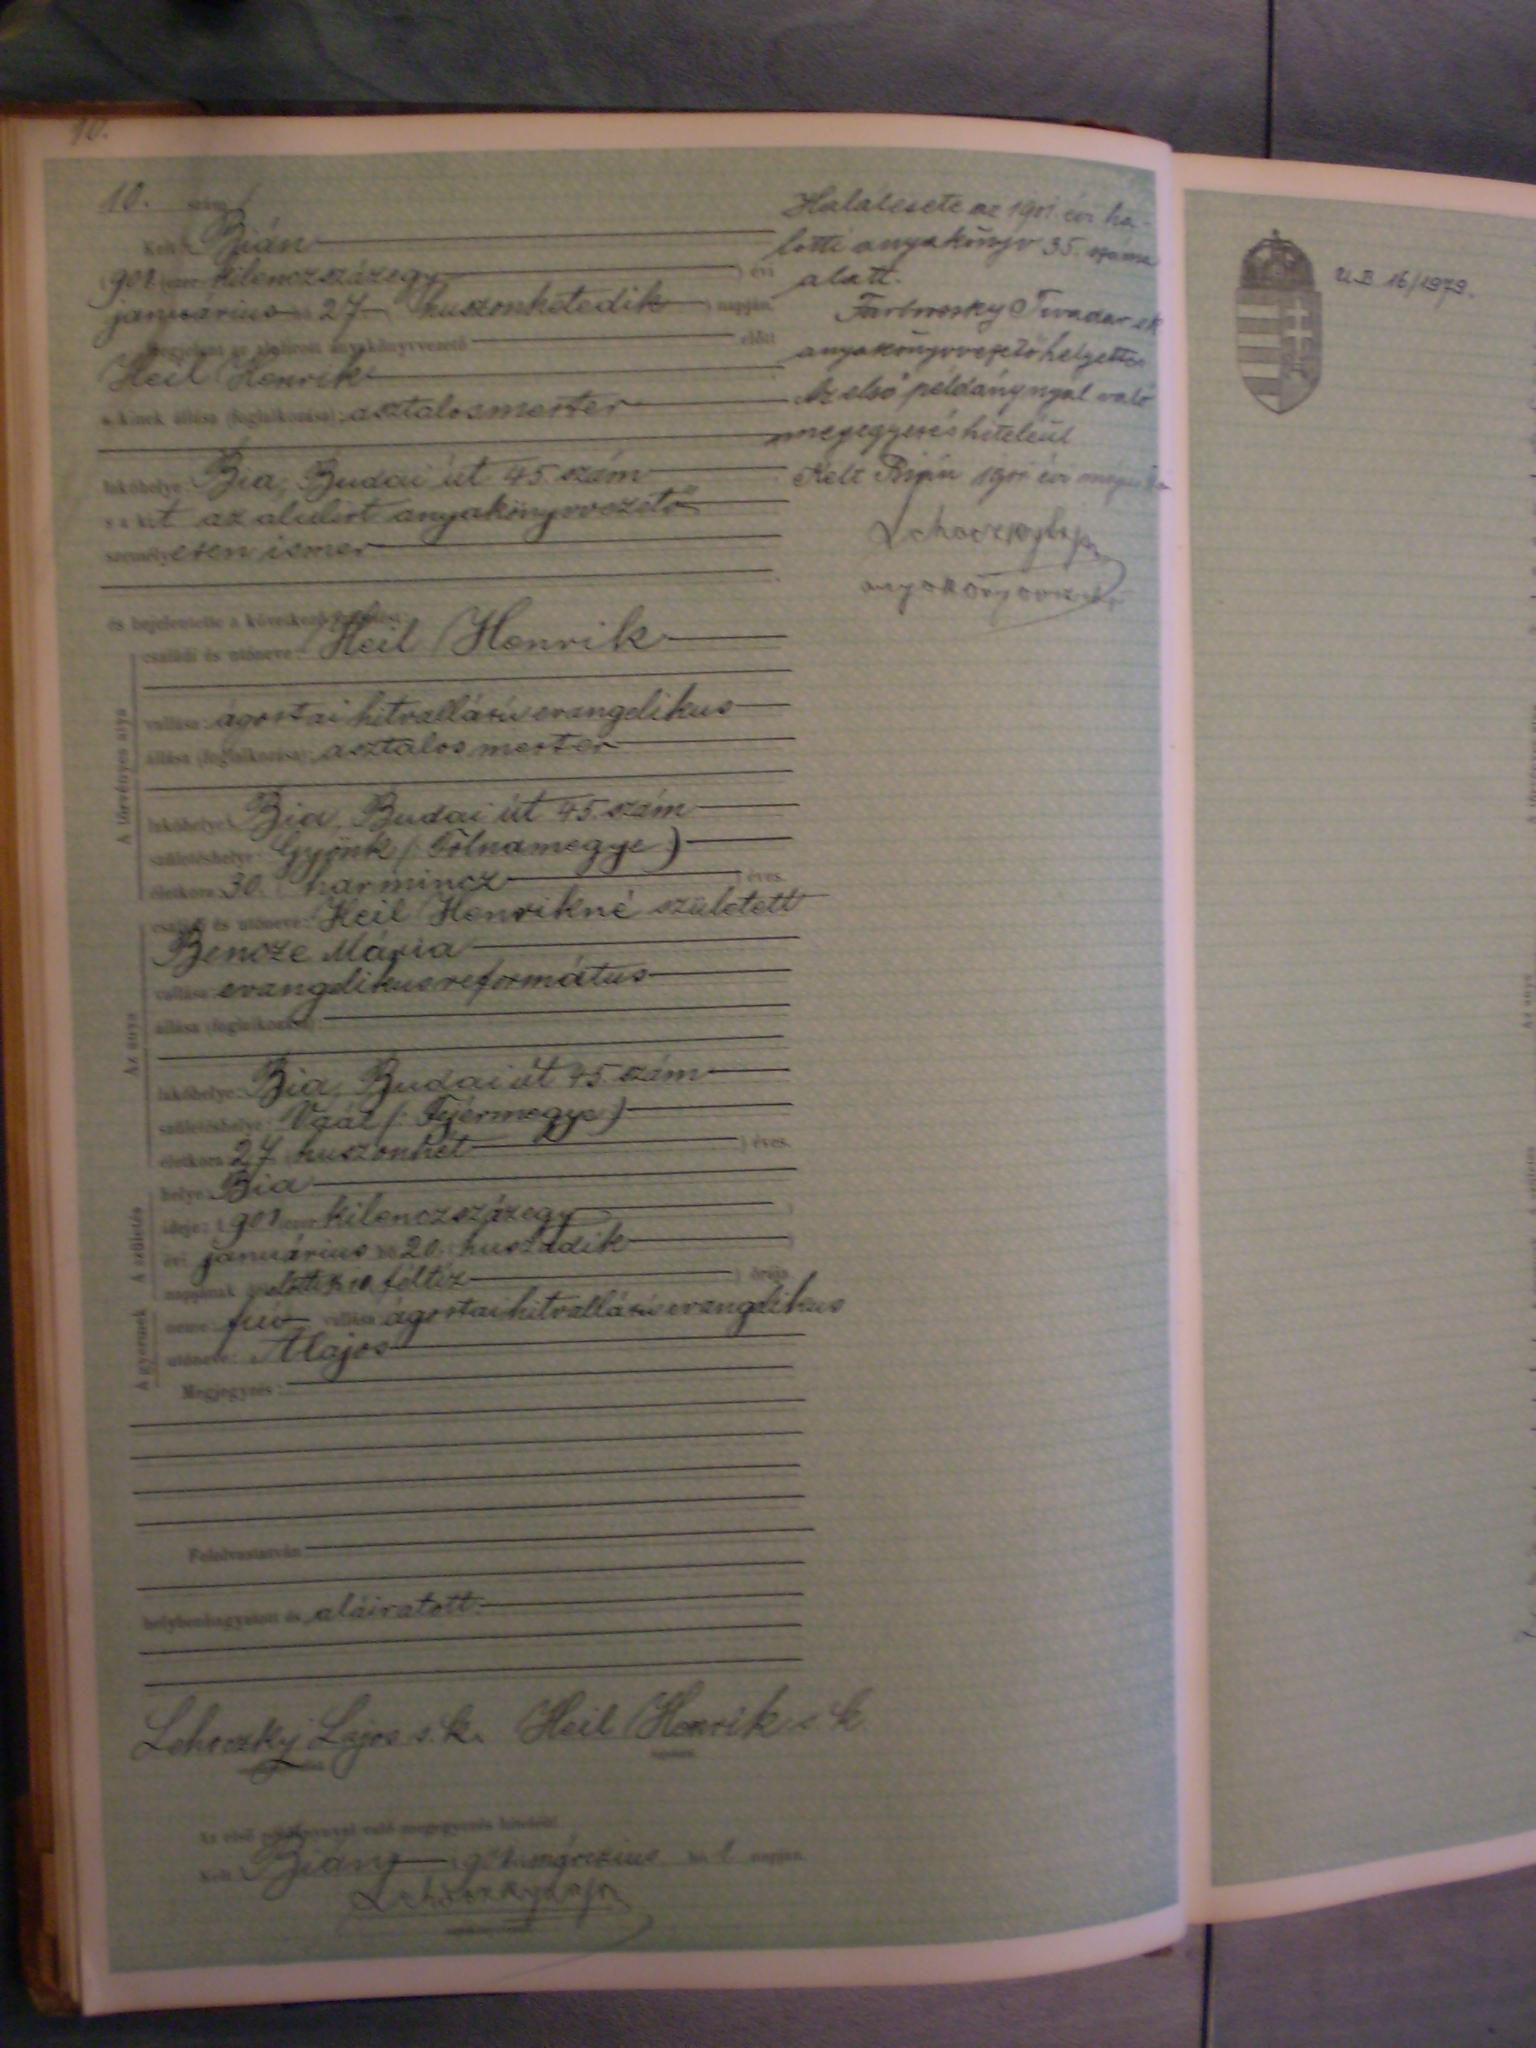 10.
10. szám
Kelt Bián
1901 ezer kilenczszázegy évi
januárius hó 27 huszonketedik napján,
megjelent az alulírott anyakönyvvezető előtt
Heil Henrik
a kinek állása (foglalkozása): asztalosmester
lakóhelye: Bia, Budai út 45. szám
s a kit az alulirt anyakönyvvezető
személyesen ismer
és bejelentette a következő
családi és utóneve: Heil Henrik
vallása: ágostai hitvallású evangelikus
állása (foglalkozása): asztalos mester
lakóhelye: Bia, Budai út 45. szám
születéshelye: Gyönk (: Tolnamegye)
életkora: 30. harmincz éves.
családi és utóneve: Heil Henrikné született
Bencze Mária
vallása: evangelikus református
állása (foglalkozása):
lakóhelye: Bia, Budai út 45. szám
születéshelye: Vaál (: Fejérmegye)
életkora: 27 huszonhét éves.
helye: Bia
ideje: 1901 ezer kilenczszázegy
évi januárius hó 20. huszadik
napjának délelőtti ½10. féltíz órája
neme: fiú vallása: ágostai hitvallású evangelikus
utóneve: Alajos
Megjegyzés:
Felolvastatván
helybenhagyatott és aláiratott.
Lehoczky Lajos s.k. Heil Henrik s k
Az első példánnyal való megegyezés hiteléül
Kelt Bián, 1901 márczius hó 1 napján.
Lehoczky Lajos
A törvényes atya
Az anya
A születés
A gyermek
Halálesete az 1901. évi ha-
lotti anyakönyv 35. száma
alatt.
Tivadar sk
anyakönyvvezető helyettes
Az első példánynyal való
megegyezés hiteléül
Kelt Bián 1901 évi
Lehoczky Lajos
anyakönyvvezető
U.B. 16/1979.